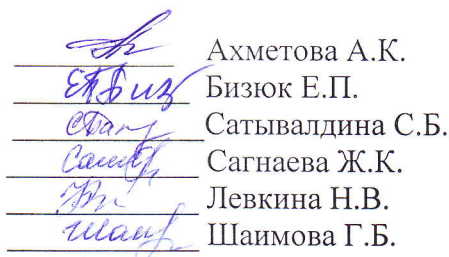 Ахметова А.К.
Бизюк Е.П.
Сатывалдина С.Б.
Сагнаева Ж.К.
Левкина Н.В.
Шаимова Г.Б.